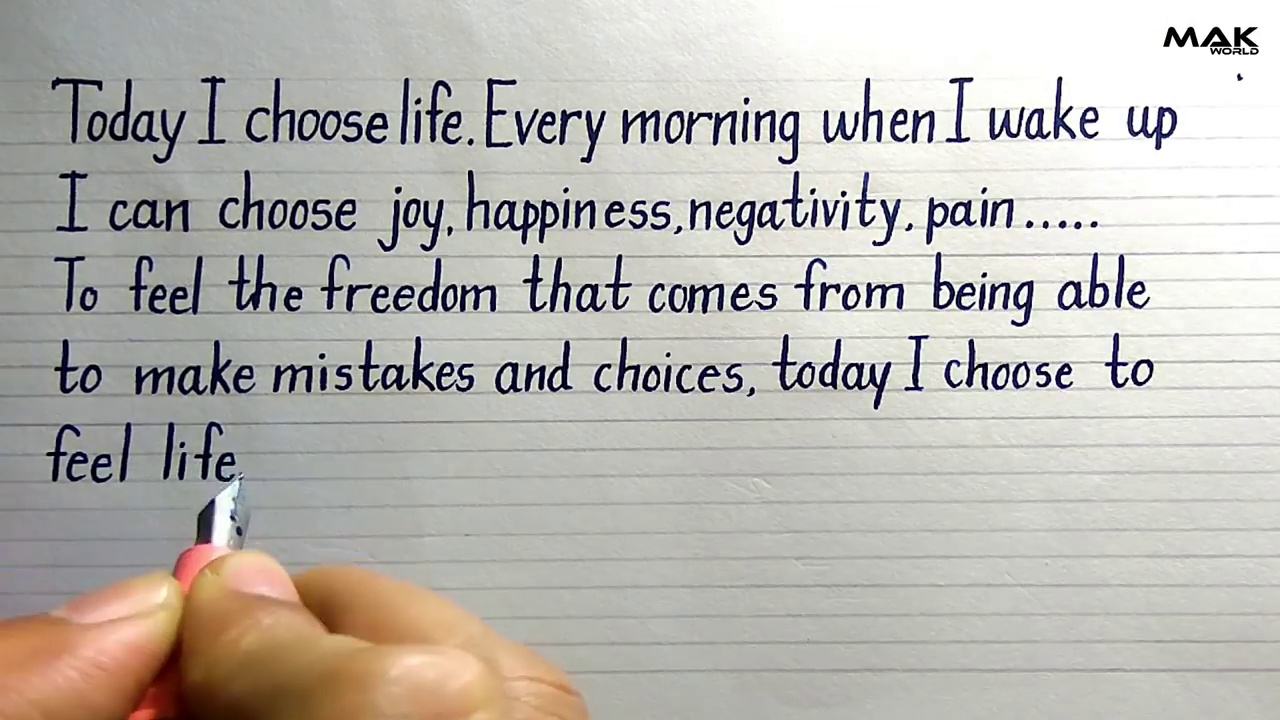 MAK
WORLD
Today I choose life. Every morning when I wake up
I can choose joy, happiness, negativity, pain.....
To feel the freedom that comes from being able
to make mistakes and choices, today I choose to
feel life